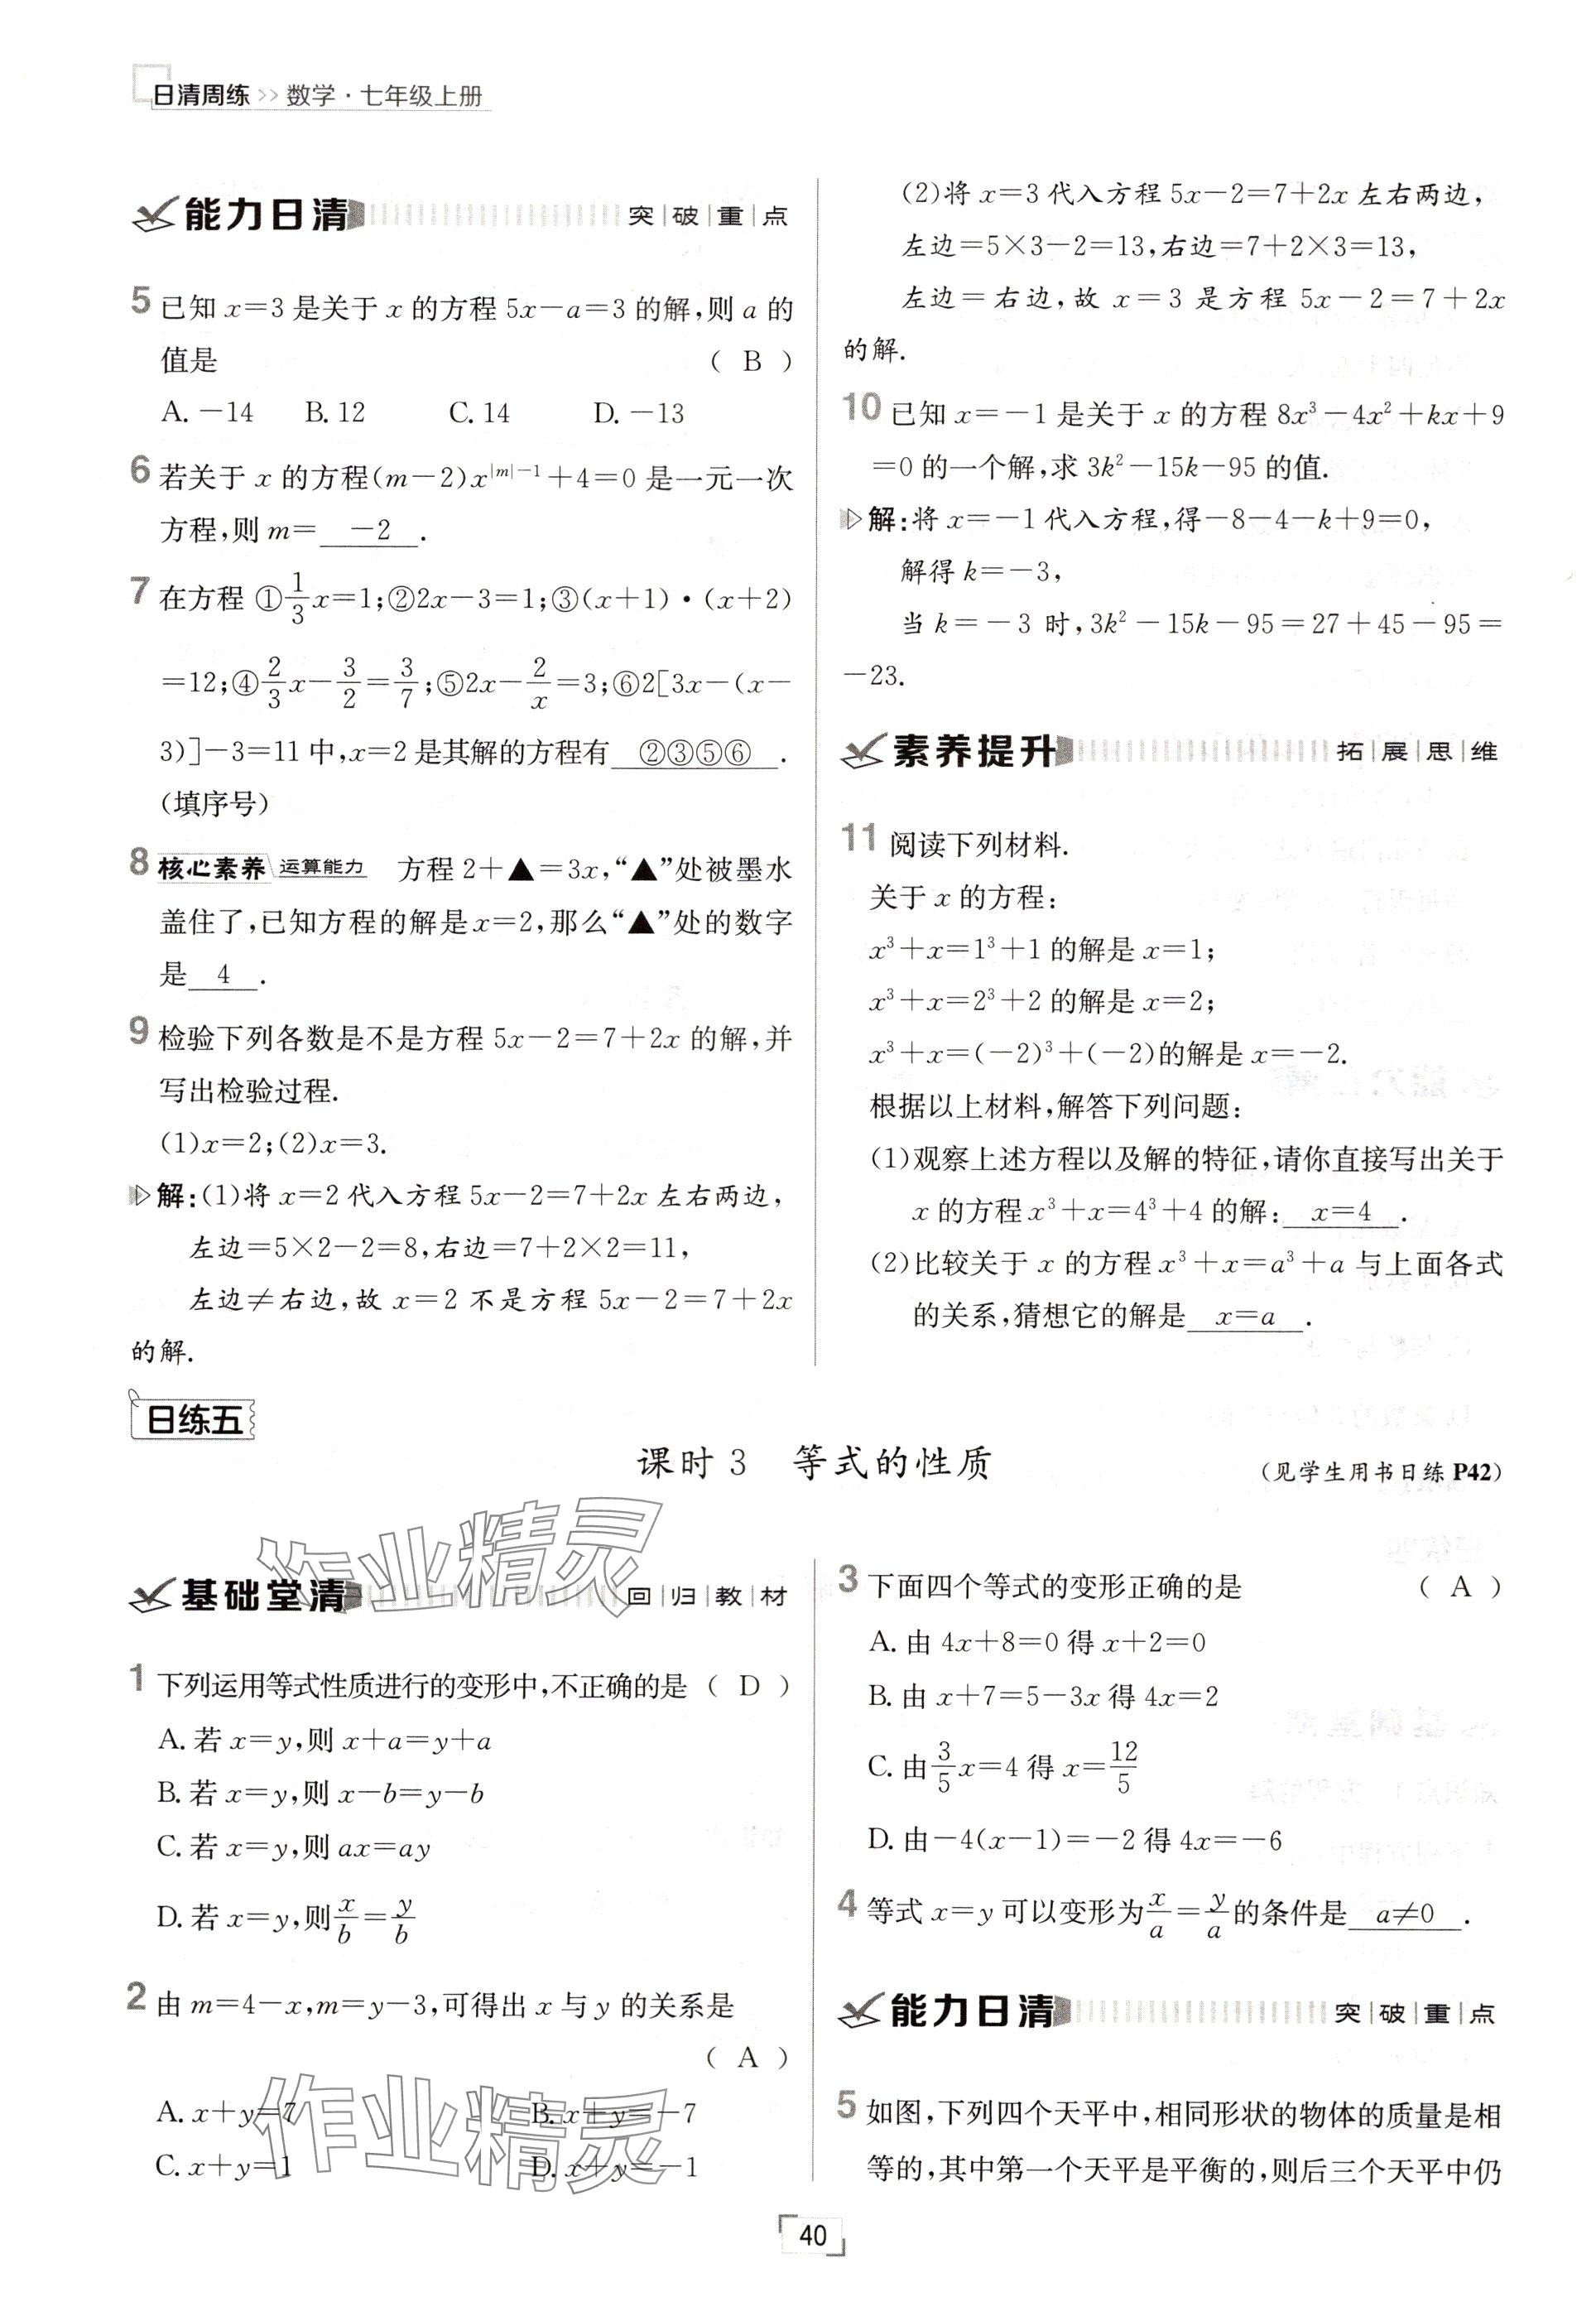 日清周练 >> 数学·七年级上册
能力日清 突|破|重|点
5 已知 x=3 是关于 x 的方程 5x-a=3 的解,则 a 的
值是 ( B )
A. -14 B. 12 C. 14 D. -13
6 若关于 x 的方程(m-2)x^{|m|-1}+4=0 是一元一次
方程,则 m= -2 .
7 在方程 ①\frac{1}{3}x=1;②2x-3=1;③(x+1)·(x+2)
=12;④\frac{2}{3}x-\frac{3}{2}=\frac{3}{7};⑤2x-\frac{2}{x}=3;⑥2[3x-(x-
3)]-3=11 中,x=2 是其解的方程有 ②③⑤⑥ .
(填序号)
8 核心素养 运算能力 方程 2+▲=3x,“▲”处被墨水
盖住了,已知方程的解是 x=2,那么“▲”处的数字
是 4 .
9 检验下列各数是不是方程 5x-2=7+2x 的解,并
写出检验过程.
(1)x=2;(2)x=3.
解:(1)将 x=2 代入方程 5x-2=7+2x 左右两边,
左边=5×2-2=8,右边=7+2×2=11,
左边≠右边,故 x=2 不是方程 5x-2=7+2x
的解.
(2)将 x=3 代入方程 5x-2=7+2x 左右两边,
左边=5×3-2=13,右边=7+2×3=13,
左边=右边,故 x=3 是方程 5x-2=7+2x
的解.
10 已知 x=-1 是关于 x 的方程 8x³-4x²+kx+9
=0 的一个解,求 3k²-15k-95 的值.
解:将 x=-1 代入方程,得-8-4-k+9=0,
解得 k=-3,
当 k=-3 时,3k²-15k-95=27+45-95=
-23.
素养提升 拓|展|思|维
11 阅读下列材料.
关于 x 的方程:
x³+x=1³+1 的解是 x=1;
x³+x=2³+2 的解是 x=2;
x³+x=(-2)³+(-2)的解是 x=-2.
根据以上材料,解答下列问题:
(1)观察上述方程以及解的特征,请你直接写出关于
x 的方程 x³+x=4³+4 的解: x=4 .
(2)比较关于 x 的方程 x³+x=a³+a 与上面各式
的关系,猜想它的解是 x=a .
日练五
课时 3 等式的性质 (见学生用书日练 P42)
基础堂清 回|归|教|材
1 下列运用等式性质进行的变形中,不正确的是 ( D )
A. 若 x=y,则 x+a=y+a
B. 若 x=y,则 x-b=y-b
C. 若 x=y,则 ax=ay
D. 若 x=y,则\frac{x}{b}=\frac{y}{b}
2 由 m=4-x,m=y-3,可得出 x 与 y 的关系是
( A )
A. x+y=7 B. x+y=-7
C. x+y=1 D. x+y=-1
3 下面四个等式的变形正确的是 ( A )
A. 由 4x+8=0 得 x+2=0
B. 由 x+7=5-3x 得 4x=2
C. 由\frac{3}{5}x=4 得 x=\frac{12}{5}
D. 由-4(x-1)=-2 得 4x=-6
4 等式 x=y 可以变形为\frac{x}{a}=\frac{y}{a}的条件是 a≠0 .
能力日清 突|破|重|点
5 如图,下列四个天平中,相同形状的物体的质量是相
等的,其中第一个天平是平衡的,则后三个天平中仍
40
作业精灵
作业精灵